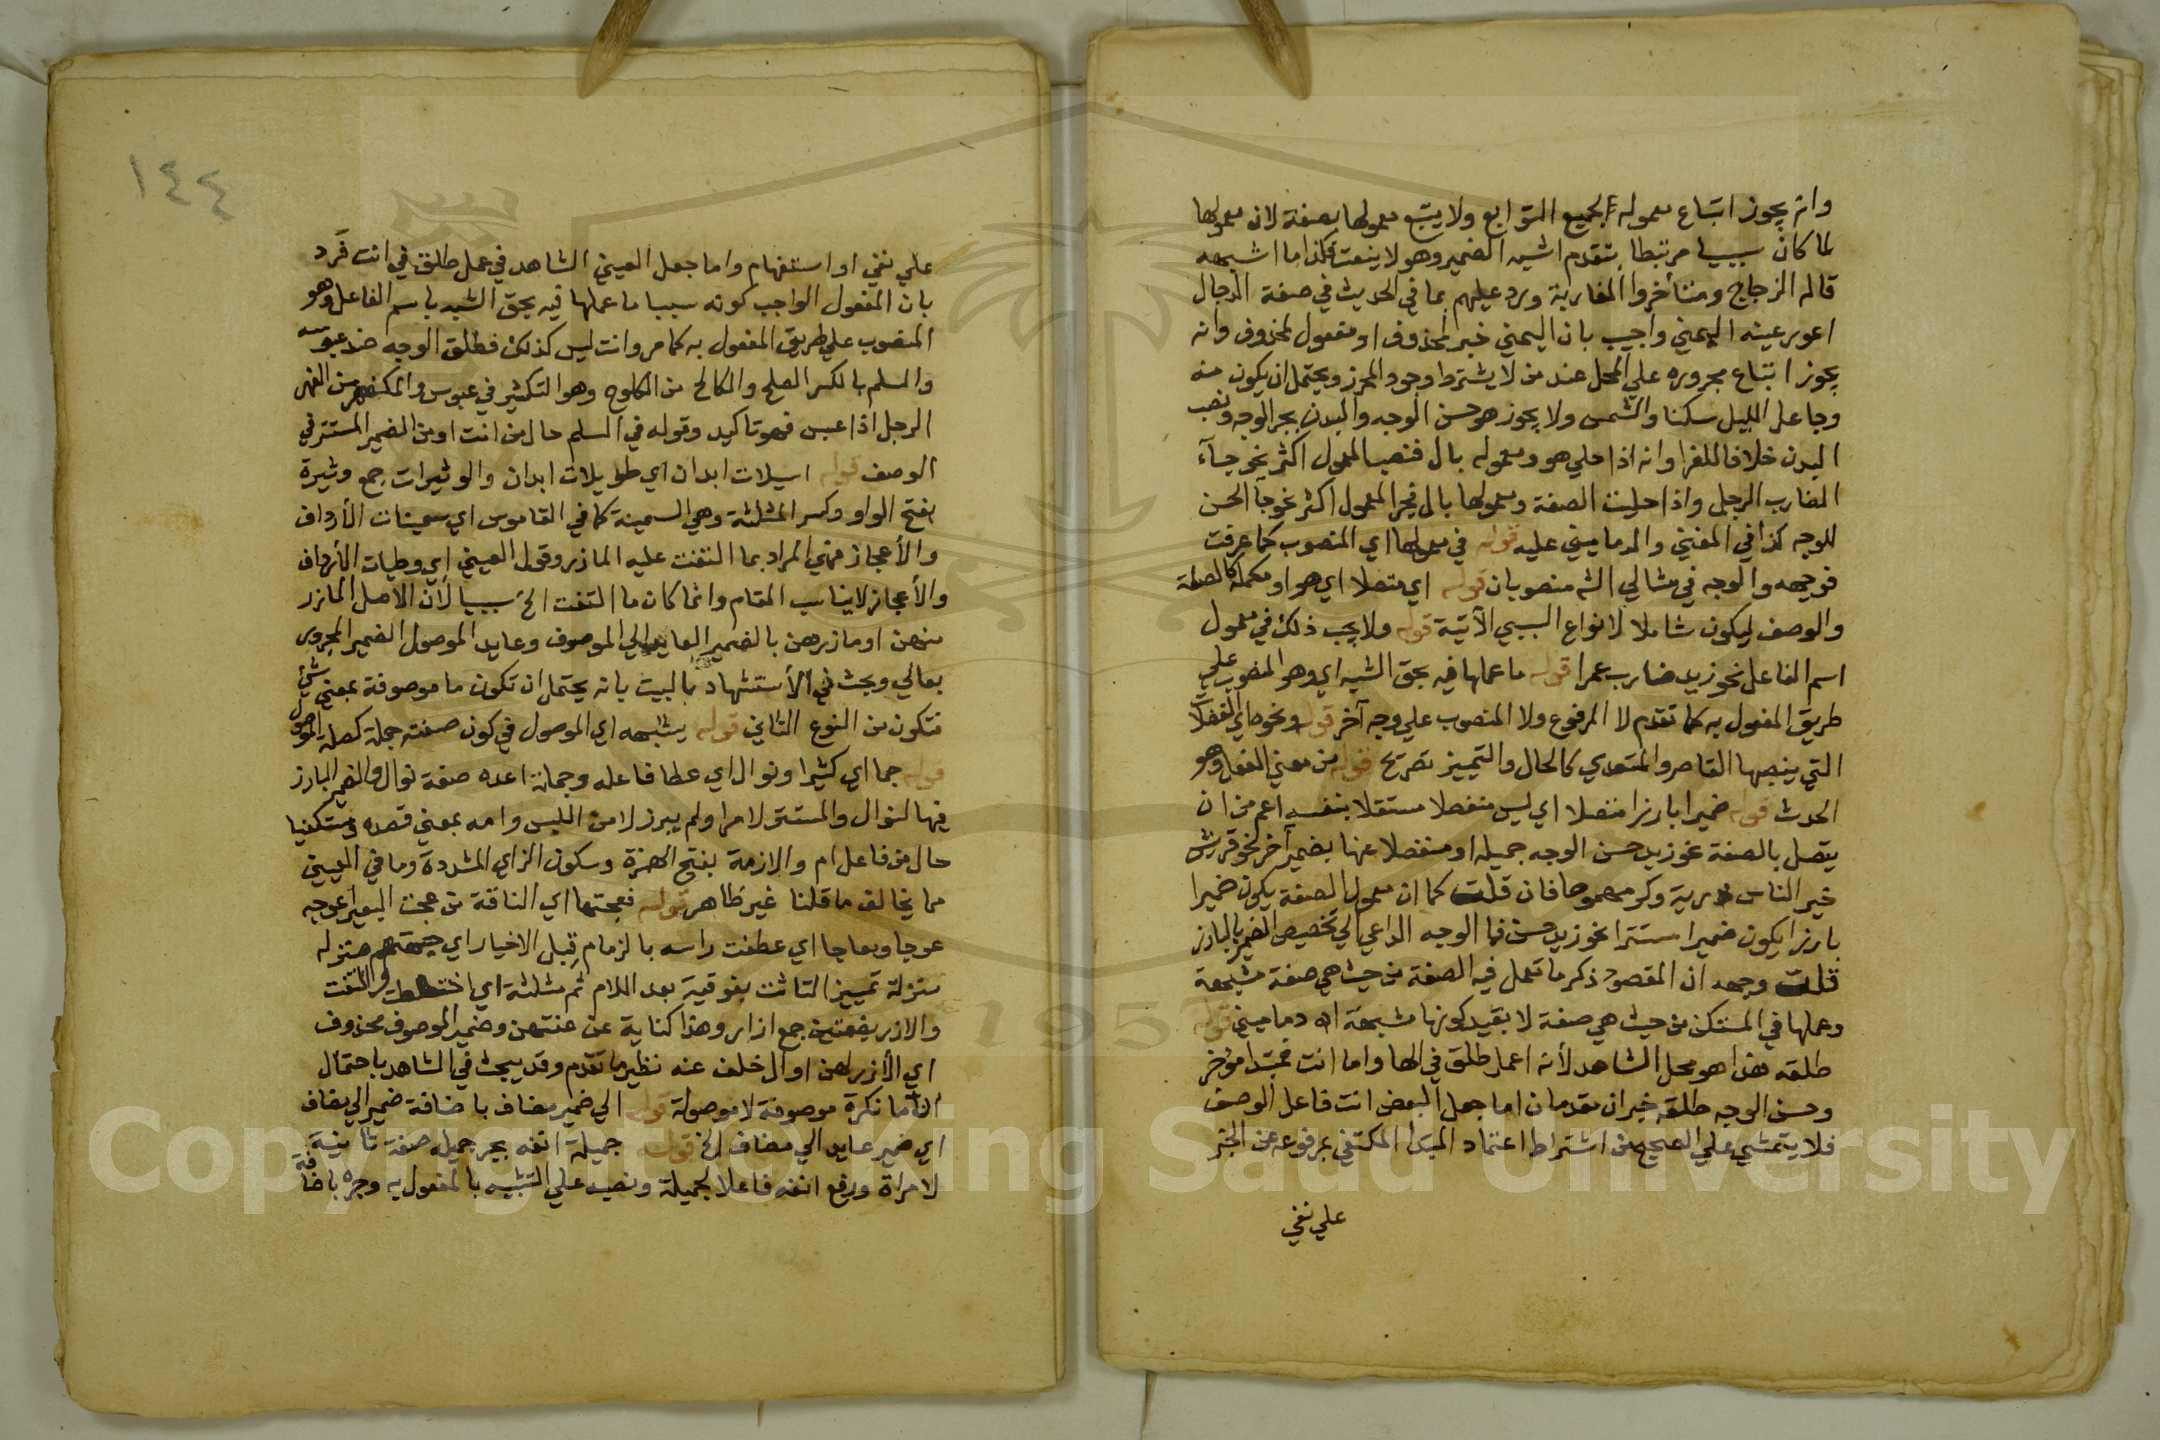 وانه يجوز اتباع معموله لجميع التوابع ولا يتبع معمولها بصفة لان معمولها
لما كان سببيا مرتبطا بتقدم اشبه الضمير وهو لا ينعت فكذا ما اشبهه
قاله الزجاج ومتأخروا المغاربة ويرد عليهم بما في الحديث في صفة الدجال
اعور عينه اليمني واجيب بان اليمني خبر لمحذوف او مفعول لمحذوف وانه
يجوز اتباع مجروره علي المحل عند من لا يشترط وجود المحرز ويحتمل ان يكون منه
وجاعل الليل سكنا والشمس ولا يجوز هو حسن الوجه والبدن بجر الوجه ونصب
البدن خلافا للفرا وانه اذا حلي هو ومعموله بال فنصب المعمول اكثر نحو جاء
الضارب الرجل واذا حليت الصفة ومعمولها بال فجر المعمول اكثر نحو جا الحسن
الوجه كذا في المغني والدماميني عليه قوله في معمولها اي المنصوب كما عرفت
فوجهه والوجه في مثالي الش منصوبان قوله اي متصلا اي هو او مكمله كالصلة
والوصف ليكون شاملا لانواع السببي الآتية قوله ولا يجب ذلك في معمول
اسم الفاعل نحو زيد ضارب عمرا قوله ما عملها فيه بحق الشبه اي وهو المنصوب علي
طريق المفعول به كما تقدم لا المرفوع ولا المنصوب علي وجه آخر قوله ونحوه اي الفضلات
التي ينصبها القاصر والمتعدي كالحال والتمييز تصريح قوله من معني الفعل وهو
الحدث قوله ضميرا بارزا متصلا اي ليس منفصلا مستقلا بنفسه اعم من ان
يتصل بالصفة نحو زيد حسن الوجه جميله او منفصلا عنها بضمير آخر نحو قريش
خير الناس ذرية وكرمهموها فان قلت كما ان معمول الصفة يكون ضميرا
بارزا يكون ضميرا مستترا نحو زيد حسن فما الوجه الداعي الي تخصيص الضمير بالبارز
قلت وجهه ان المقصود ذكر ما تعمل فيه الصفة من حيث هي صفة مشبهة
وعملها في المستكن من حيث هي صفة لا بقيد كونها مشبهة اه دماميني قوله
طلقه هذا هو محل الشاهد لأنه اعمل طلق في الها واما انت فمبتدا مؤخر
وحسن الوجه طلقه خبران مقدمان اما جعل البعض انت فاعل الوصف
فلا يتمشي علي الصحيح من اشتراط اعتماد المبتدا المكتفي بمرفوعه عن الخبر
علي نفي
١٤٤
علي نفي او استفهام واما جعل العيني الشاهد في عمل طلق في انت فَرد
بان المفعول الواجب كونه سببيا ما عملها فيه بحق الشبه باسم الفاعل وهو
المنصوب علي طريق المفعول به كما مر وانت ليس كذلك فطلق الوجه ضد عبوسه
والسلم بالكسر الصلح والكالح من الكلوح وهو التكثير في عبوس والمكفهر من اكفهر
الرجل اذا عبس فهو تاكيد وقوله في السلم حال من انت او من الضمير المستتر في
الوصف قوله اسيلات ابدان اي طويلات ابدان والوثيرات جمع وثيرة
بفتح الواو وكسر المثلثة وهي السمينة كما في القاموس اي سمينات الأرداف
والأعجاز فهي المراد بما التفت عليه المازر وقول العيني اي وطيات الأرداف
والأعجاز لا يناسب المقام وانما كان ما التفت الخ سببيا لأن الاصل المازر
منهن او مازرهن بالضمير العايد الي الموصوف وعايد الموصول الضمير المجرور
بعالي وبحث في الأستشهاد بالبيت بانه يحتمل ان تكون ما موصوفة بمعني شئ
فتكون من النوع الثاني قوله يشبهه اي الموصول في كون صفته جملة كصلة الموصول
قوله جما اي كثيرا ونوال اي عطا فاعله وجملة اعده صفة نوال والضمير البارز
فيها لنوال والمستتر لامرا ولم يبرز لامن اللبس وامه بمعني قصده ومستكفيا
حال من فاعل ام والازمة بفتح الهمزة وسكون الزاي المشددة وما في العيني
مما يخالف ما قلنا غير ظاهر قوله فعجتها اي الناقة من عجت البعير اعوجه
عوجا ومعاجا اي عطفت راسه بالزمام قِبل الاخيار اي جهتهم منزله
منزلة تمييز التاثت بفوقية بعد اللام ثم مثلثة اي اختلطت والتفت
والازر بضمتين جمع ازار وهذا كناية عن عفتهن وضمير الموصوف محذوف
اي الأزر لهن او ال خلف عنه نظير ما تقدم وقد يبحث في الشاهد باحتمال
ان ما نكرة موصوفة لا موصولة قوله الي ضمير مضاف باضافة ضمير الي مضاف
اي ضمير عايد الي مضاف الخ قوله جميلة انفه بجر جميلة صفة ثانية
لامراة ورفع انفه فاعلا لجميلة ونصبه علي التشبيه بالمفعول به وجره باضافة
Copyright © King Saud University
1957